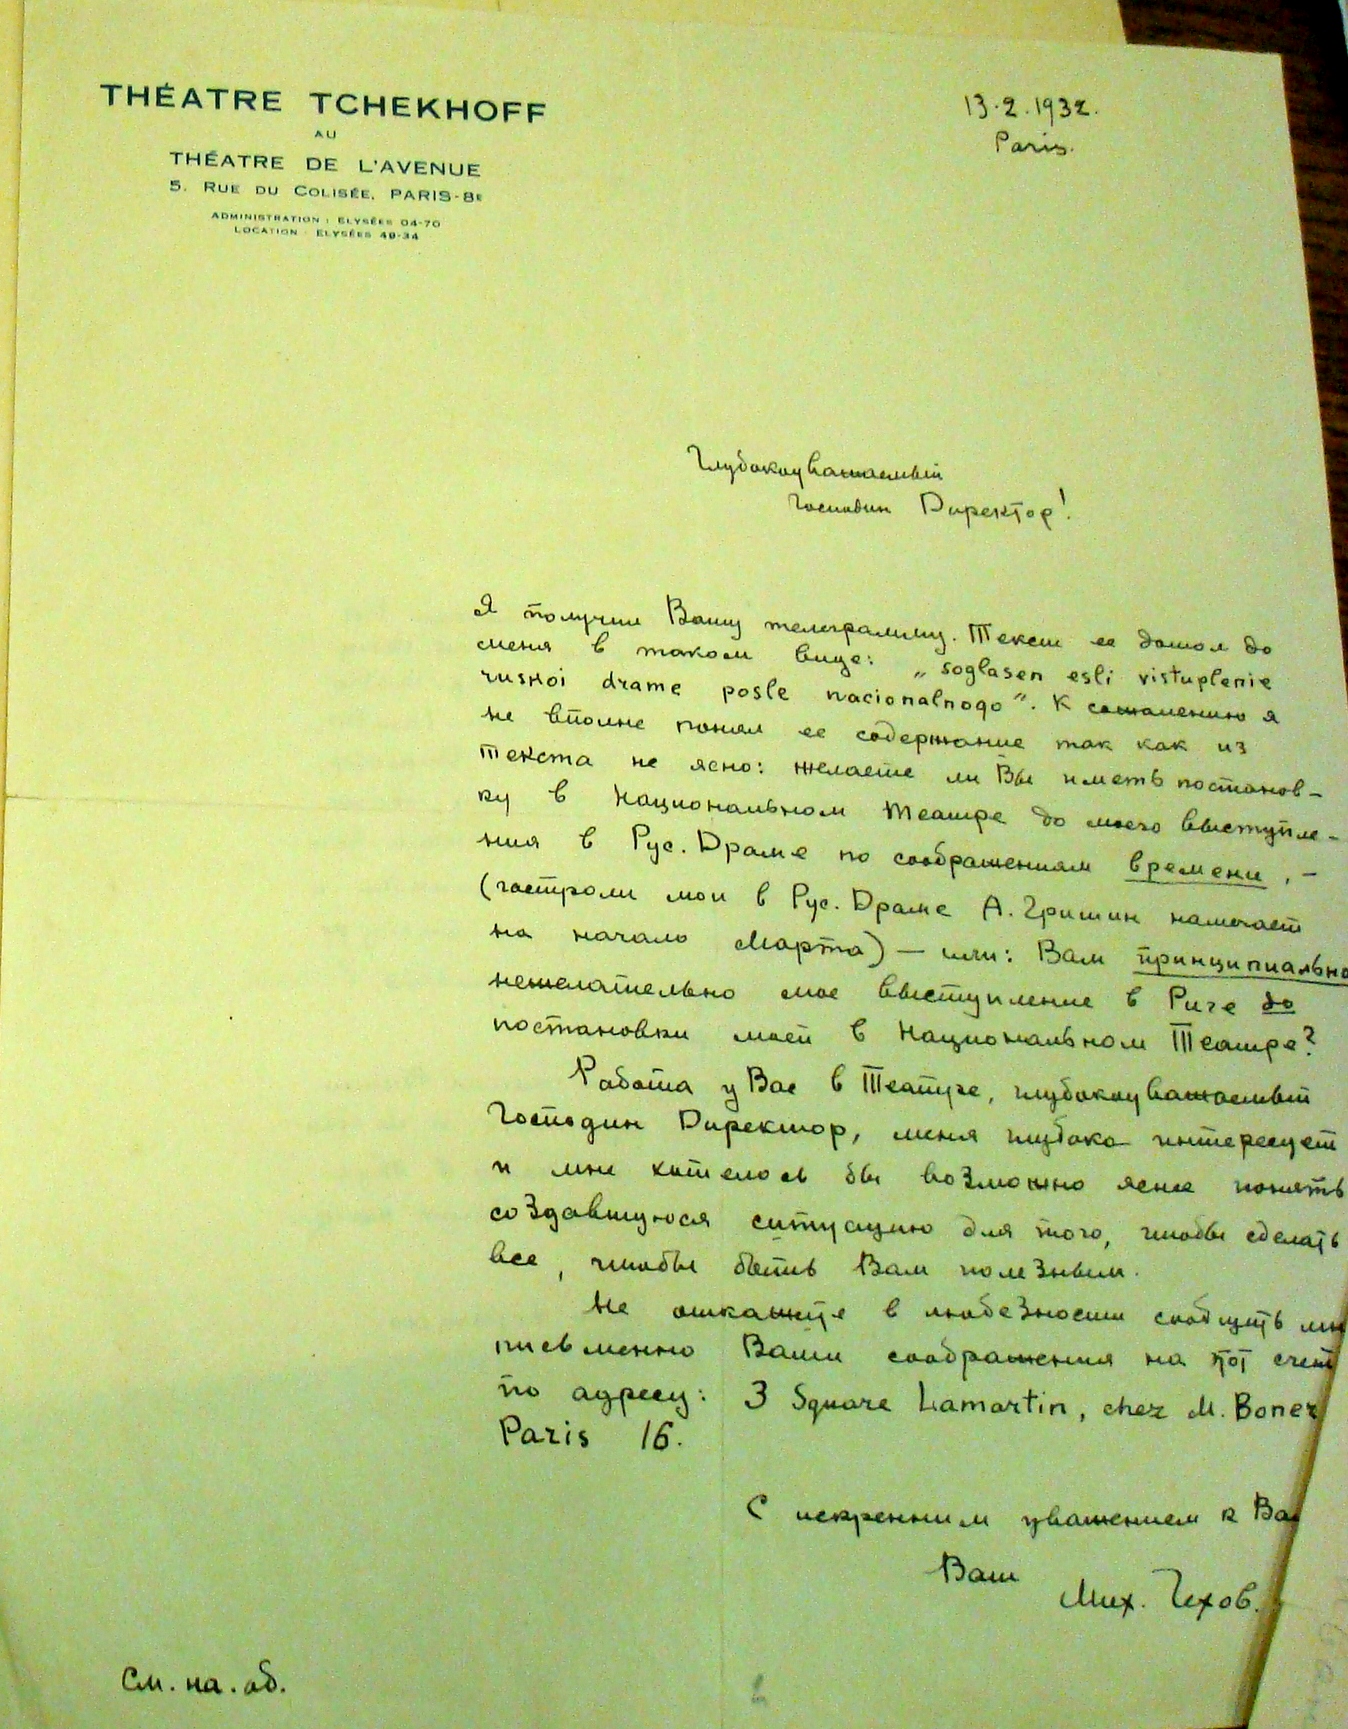 THÉATRE TCHEKHOFF
AU
THÉATRE DE L'AVENUE
5, RUE DU COLISÉE, PARIS-8E
ADMINISTRATION : ELYSÉES 04-70
LOCATION : ELYSÉES 49-34
13.2.1932.
Paris.
Глубокоуважаемый
Господин Директор!
Я получил Вашу телеграмму. Текст ее дошол до
меня в таком виде: „soglasen esli vistuplenie
ruskoi drame posle nacionalnogo“. К сожалению я
не вполне понял ее содержание так как из
текста не ясно: желаете ли Вы иметь постанов-
ку в Национальном Театре до моего выступле-
ния в Рус. Драме по соображениям времени, –
(гастроли мои в Рус. Драме А. Гришин намечает
на начало Марта) – или: Вам принципиально
нежелательно мое выступление в Риге до
постановки моей в Национальном Театре?
Работа у Вас в Театре, глубокоуважаемый
Господин Директор, меня глубоко интересует
и мне хотелось бы возможно яснее понять
создавшуюся ситуацию для того, чтобы сделать
все, чтобы быть Вам полезным.
Не откажите в любезности сообщить мне
письменно Ваши соображения на тот счет
по адресу: 3 Square Lamartin, chez M. Boner
Paris 16.
С искренним уважением к Вам
Ваш
Мих. Чехов.
См. на. об.